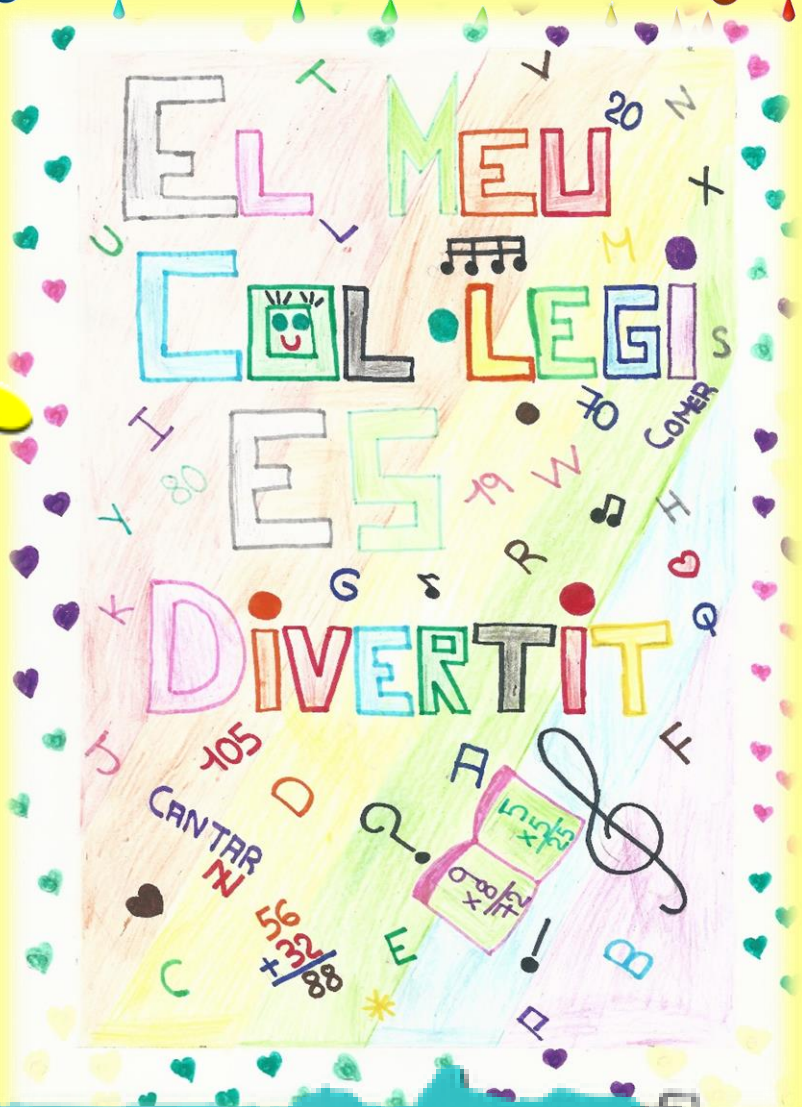 EL MEU
COL·LEGI
ES
DiVERTiT
T
V
20
N
X
U
L
M
S
I
80
70
COMER
19
W
Y
H
R
G
K
Q
J
105
D
A
F
CANTAR
N
?
5
x5
25
9
x8
72
56
+32
88
C
E
!
B
P
*